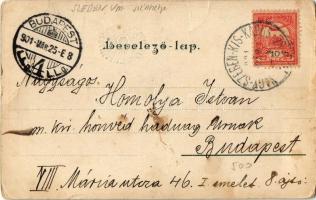 BUDAPEST
901 MÁR 25 E 8
Levelező-lap.
Nagyságos
Homolya Istvan
m. kir. honvéd hadnagy Urnak
Budapest
VIII Mária utcza 46. I emelet 8. ajtó